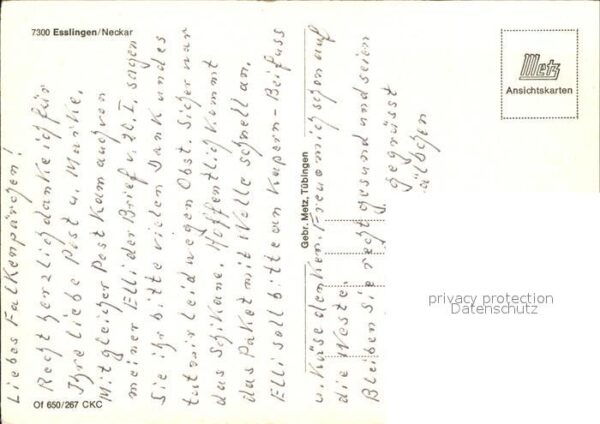 7300 Esslingen/Neckar
Metz
Ansichtskarten
Liebes Falkenpärchen!
Recht herzlich danke ich für
Ihre liebe Post u. Marke.
Mit gleicher Post kam auch von
meiner Elli der Brief v. 20. I., sagen
Sie ihr bitte vielen Dank und es
tut mir leid wegen Obst. Sicher war
das Schikane. Hoffentlich kommt
das Paket mit Wolle schnell an.
Elli soll bitte an Kapern-Beifuss
u. Käse denken. Freue mich schon auf
die Weste.
Bleiben Sie recht gesund und seien
gegrüsst
Gebr. Metz, Tübingen
privacy protection
Datenschutz
Of 650/267 CKC